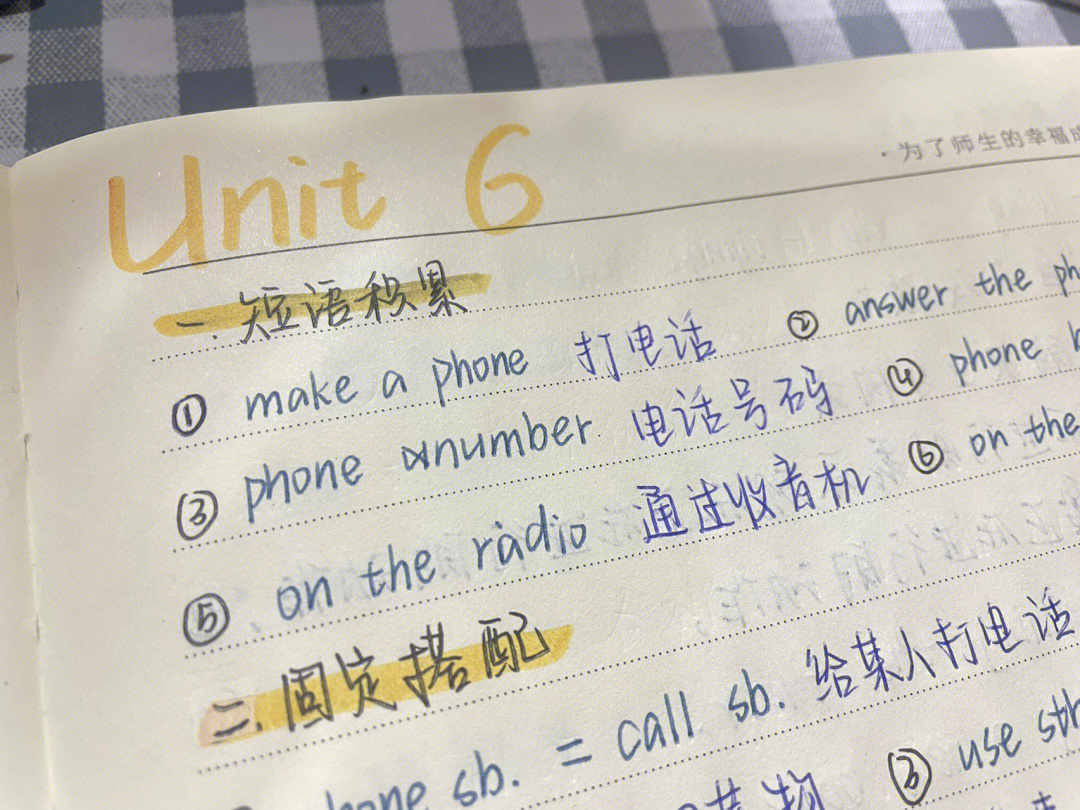 Unit 6
·为了师生的幸福
一.短语积累
① make a phone 打电话 ② answer the
③ phone number 电话号码 ④ phone
⑤ on the radio 通过收音机 ⑥ on the
二.固定搭配
sb. = call sb. 给某人打电话
③ use